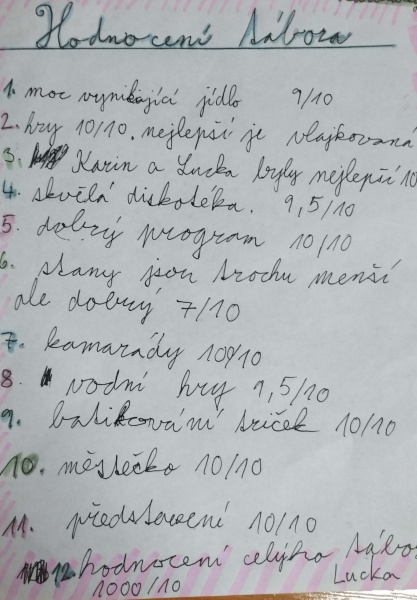 Hodnocení tábora
1. moc vynikající jídlo 9/10
2. hry 10/10. nejlepší je vlajkovana
3. Karin a Lucka byly nejlepší 10
4. skvělá diskotéka. 9,5/10
5. dobrý program 10/10
6. stany jsou trochu menší
ale dobrý 7/10
7. kamarády 100/10
8. vodní hry 9,5/10
9. batikování triček 10/10
10. městečko 10/10
11. představení 10/10
12. hodnocení celýho tábor
1000/10 Lucka